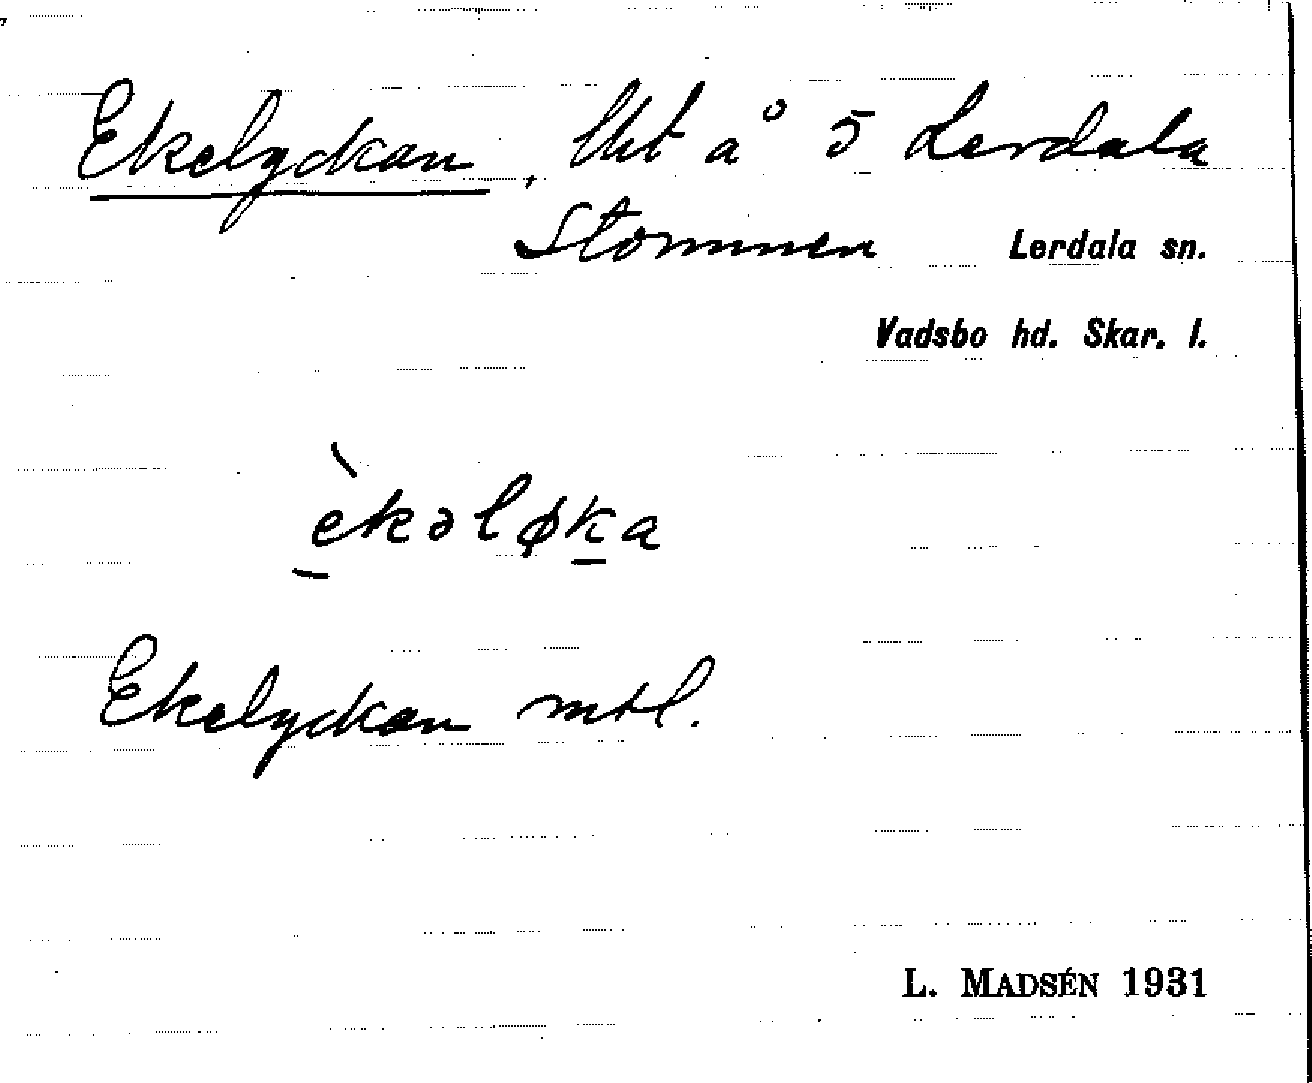 Ekelyckan, lht å 5 Lerdala
Stommen Lerdala sn.
Vadsbo hd. Skar. l.
èkəløka
Ekelyckan mtl.
L. MADSÉN 1931